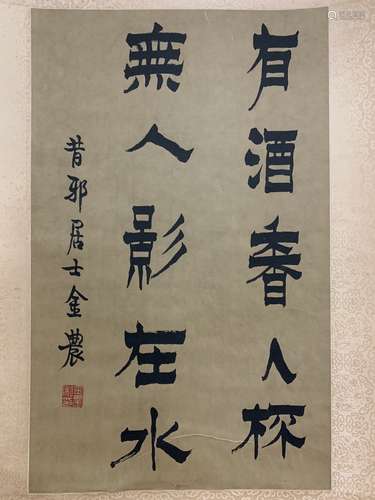 有酒香入杯
無人影在水
昔邪居士金農